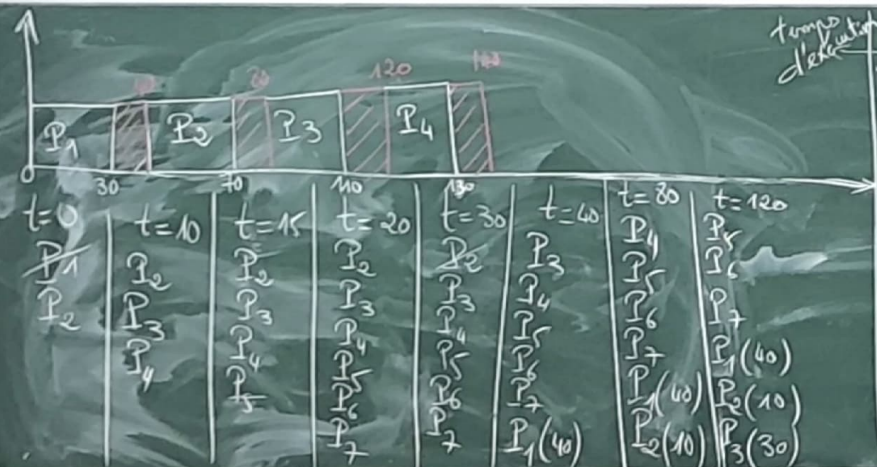 temps
d'exécution
80 120 140
P1 P2 P3 P4
0 30 70 110 130
t=0
P1
P2
t=10
P2
P3
P4
t=15
P2
P3
P4
P5
t=20
P2
P3
P4
P5
P6
P7
t=30
P2
P3
P4
P5
P6
P7
t=40
P3
P4
P5
P6
P7
P1(40)
t=80
P4
P5
P6
P7
P1(40)
P2(10)
t=120
P5
P6
P7
P1(40)
P2(10)
P3(30)